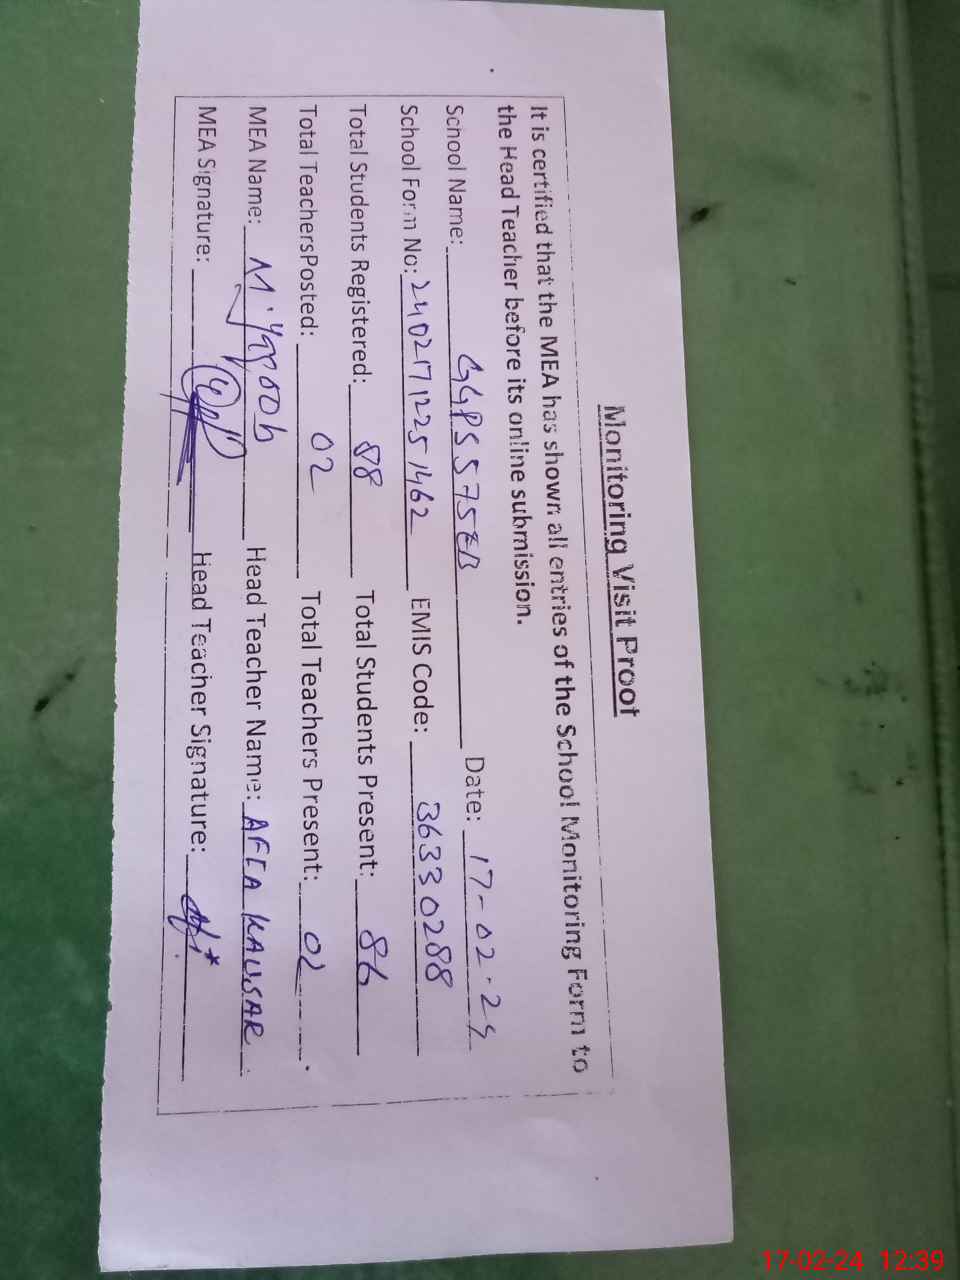 Monitoring Visit Proof
It is certified that the MEA has shown all entries of the School Monitoring Form to
the Head Teacher before its online submission.
School Name: GGPS 575EB Date: 17-02-24
School Form No: 24021712251462 EMIS Code: 36330288
Total Students Registered: 88 Total Students Present: 86
Total TeachersPosted: 02 Total Teachers Present: 02
MEA Name: M. Yaqoob Head Teacher Name: AFIA KAUSAR
MEA Signature: Head Teacher Signature:
17-02-24 12:39